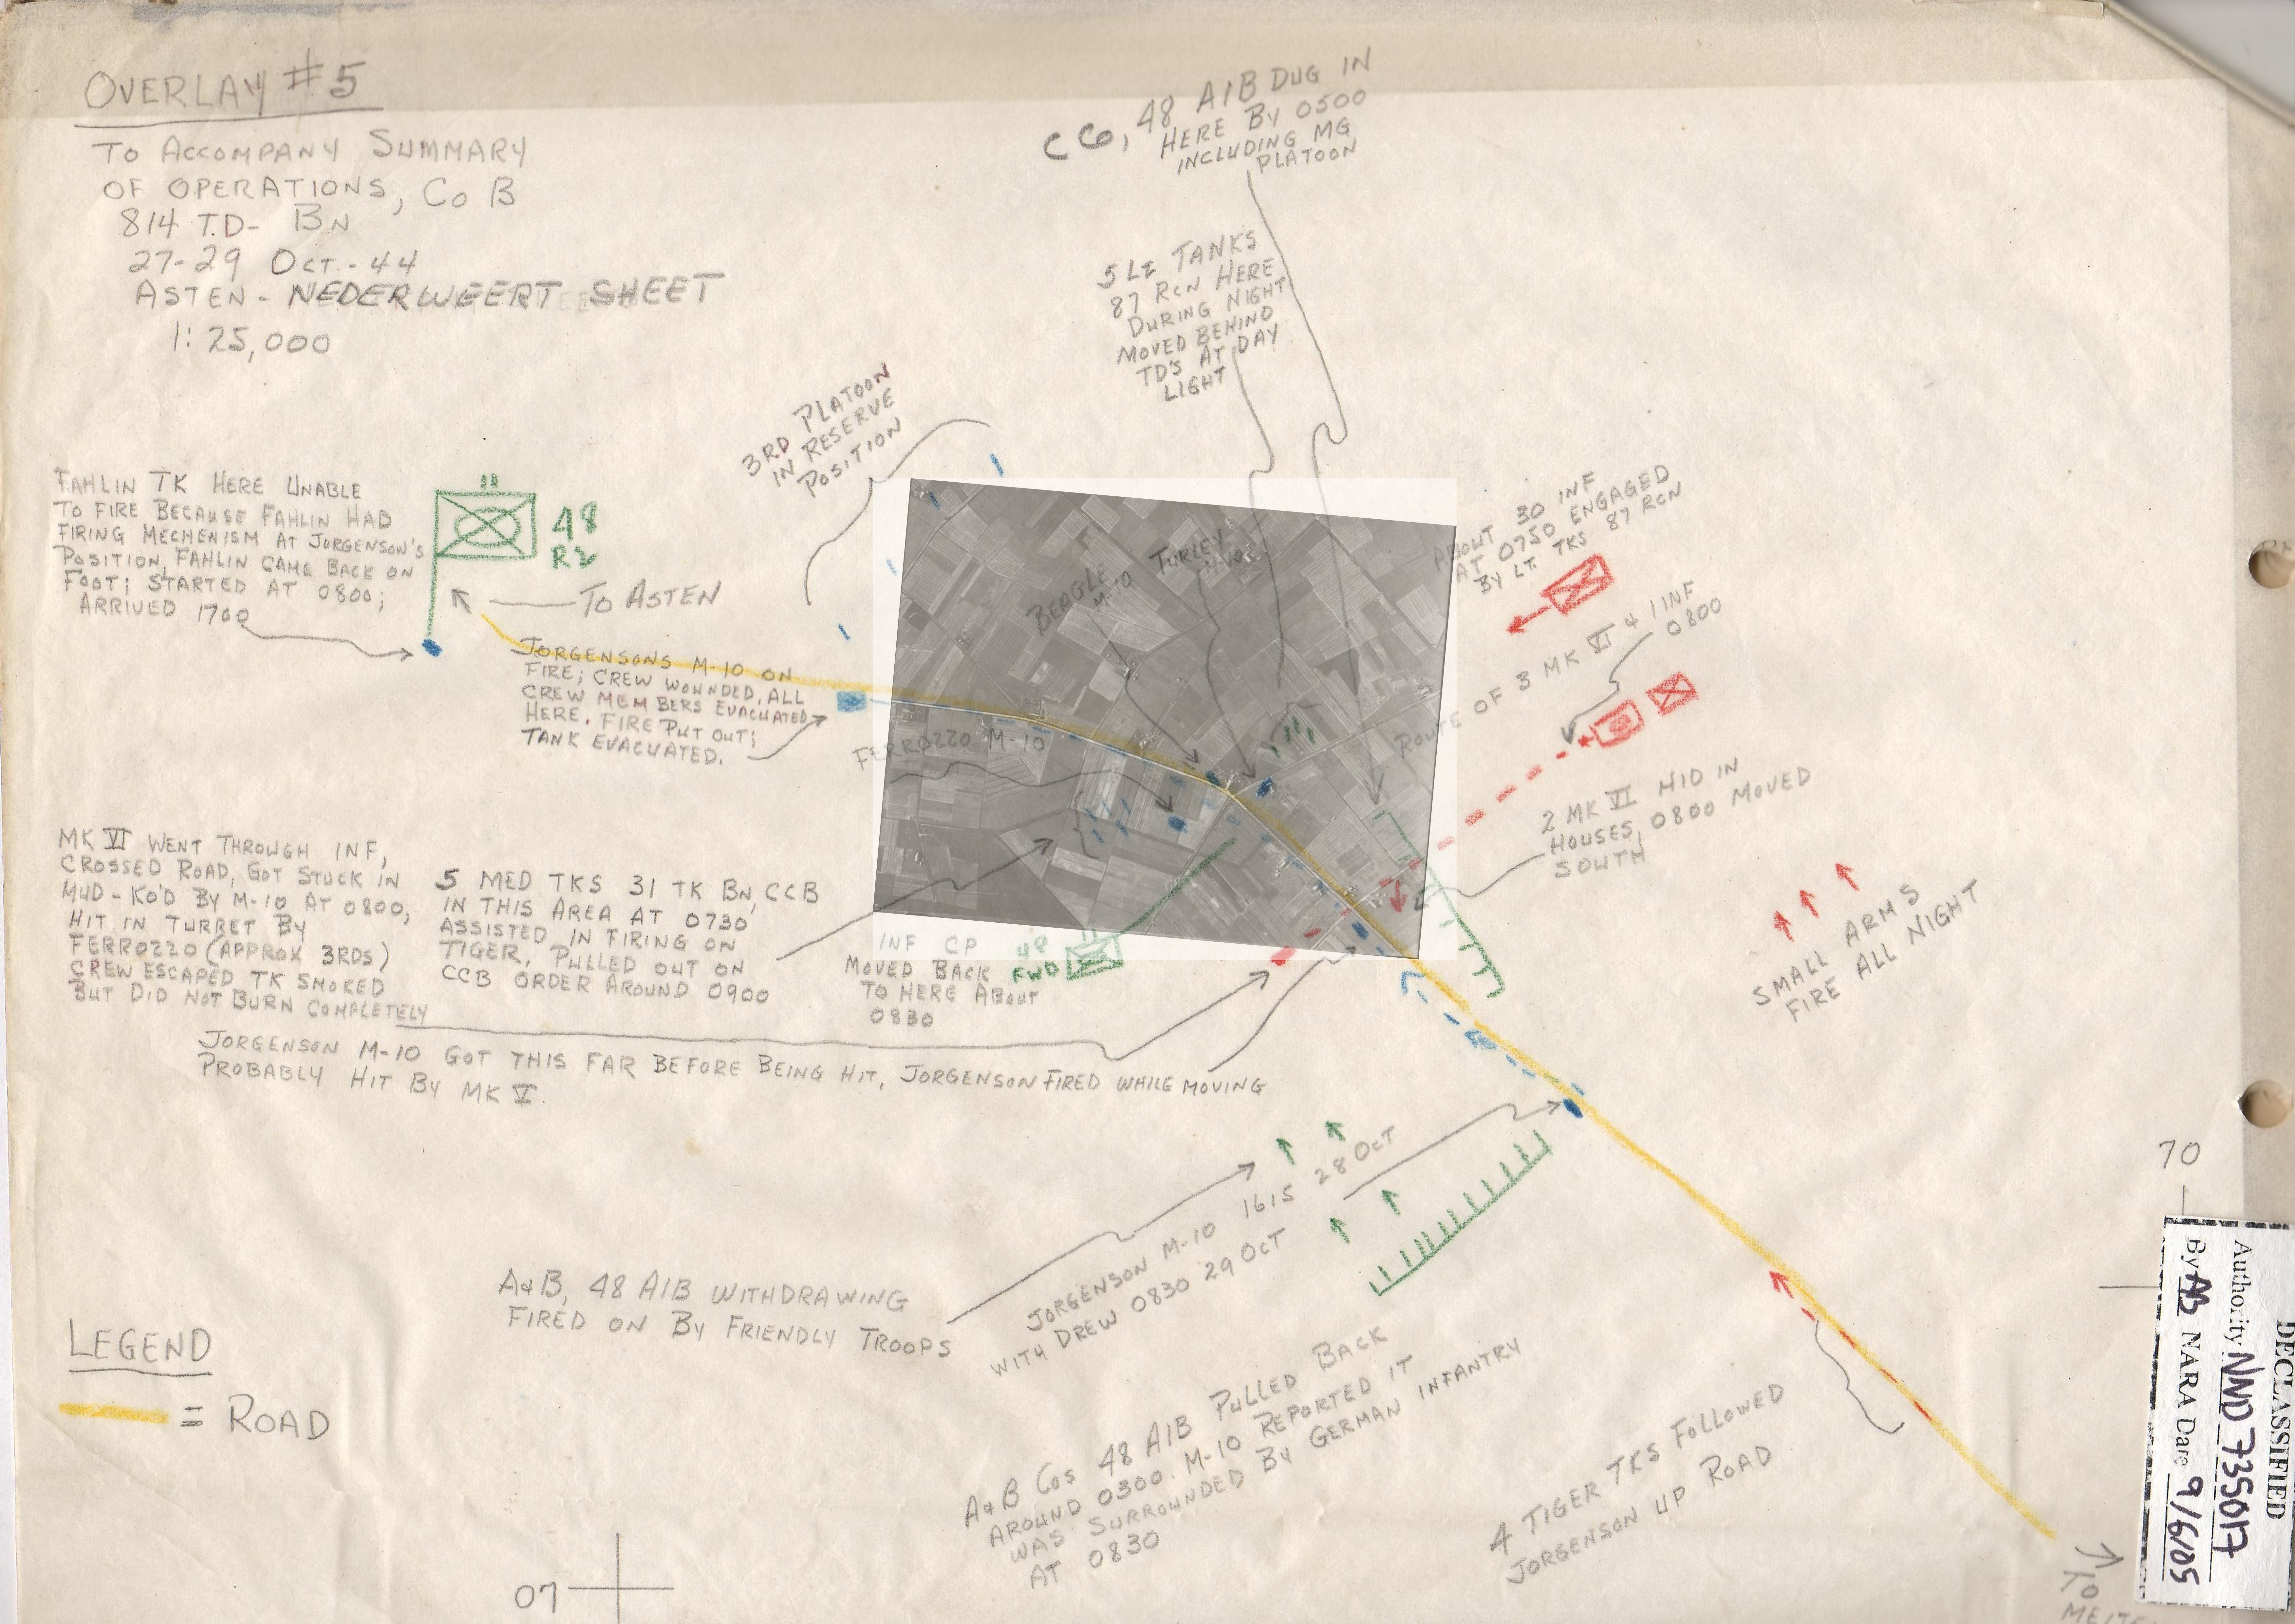 OVERLAY #5
TO ACCOMPANY SUMMARY
OF OPERATIONS, CO B
814 T.D- BN
27-29 OCT.-44
ASTEN - NEDERWEERT SHEET
1:25,000
C CO, 48 AIB DUG IN
HERE BY 0500
INCLUDING MG
PLATOON
5 LT TANKS
87 RCN HERE
DURING NIGHT
MOVED BEHIND
TD'S AT DAY
LIGHT
3RD PLATOON
IN RESERVE
POSITION
FAHLIN TK HERE UNABLE
TO FIRE BECAUSE FAHLIN HAD
FIRING MECHENISM AT JORGENSON'S
POSITION, FAHLIN CAME BACK ON
FOOT; STARTED AT 0800;
ARRIVED 1700
48
R2
TO ASTEN
JORGENSONS M-10 ON
FIRE; CREW WOUNDED, ALL
CREW MEMBERS EVACUATED
HERE. FIRE PUT OUT;
TANK EVACUATED.
BEAGLE
M-10
TURLEY
FERROZZO M-10
ABOUT 30 INF
AT 0750 ENGAGED
BY LT. TKS 87 RCN
ROUTE OF 3 MK VI & 1 INF
0800
2 MK VI HID IN
HOUSES, 0800 MOVED
SOUTH
SMALL ARMS
FIRE ALL NIGHT
MK VI WENT THROUGH INF,
CROSSED ROAD, GOT STUCK IN
MUD - KO'D BY M-10 AT 0800,
HIT IN TURRET BY
FERROZZO (APPROX 3RDS)
CREW ESCAPED TK SMOKED
BUT DID NOT BURN COMPLETELY
5 MED TKS 31 TK BN, CCB
IN THIS AREA AT 0730
ASSISTED IN FIRING ON
TIGER, PULLED OUT ON
CCB ORDER AROUND 0900
INF CP
MOVED BACK
TO HERE ABOUT
0830
48
FWD
JORGENSON M-10 GOT THIS FAR BEFORE BEING HIT, JORGENSON FIRED WHILE MOVING
PROBABLY HIT BY MK V.
JORGENSON M-10 1615 28 OCT
WITH DREW 0830 29 OCT
A&B, 48 AIB WITHDRAWING
FIRED ON BY FRIENDLY TROOPS
A&B COS 48 AIB PULLED BACK
AROUND 0300. M-10 REPORTED IT
WAS SURROUNDED BY GERMAN INFANTRY
AT 0830
4 TIGER TKS FOLLOWED
JORGENSON UP ROAD
LEGEND
= ROAD
07
70
TO
DECLASSIFIED
Authority NND 735017
By AB NARA Date 9/6/05